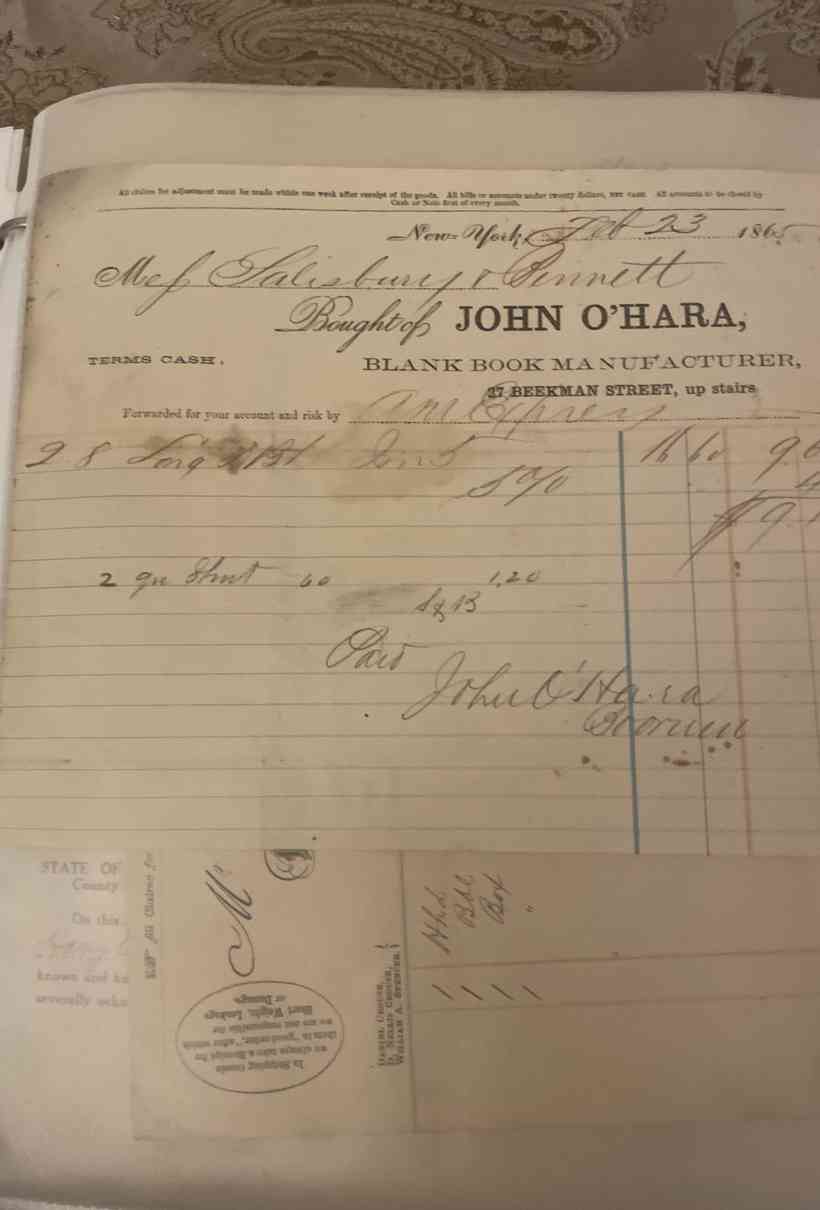 All claims for adjustment must be made within one week after receipt of the goods. All bills or accounts under twenty dollars, NET CASH. All accounts to be closed by
Cash or Note first of every month.
New-York, Feb 23 1865
Mess Salisbury & Bennett
Bought of JOHN O'HARA,
TERMS CASH. BLANK BOOK MANUFACTURER,
27 BEEKMAN STREET, up stairs
Forwarded for your account and risk by Am Express
2 8 16 60
5%
2 qu 60 1.20
Paid
John O'Hara
Boorum
STATE OF
County
On this
known and
severally
All Claims for
M
In Shipping Goods
we always take a Receipt for
them in "good order," after which
we are not responsible for
Short Weight, Leakage
or Damage.
DANIEL CROUSE,
D. NELSON CROUSE,
WILLIAM A. SPENCER.
Hhd
Bbl
Box
"
1 1 1 1